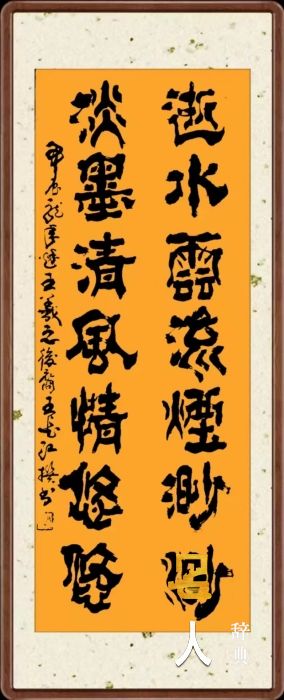 逝水雲流煙渺渺
淡墨清風情悠悠
甲辰龍年 王羲之後裔王 江撰书
人
辞典